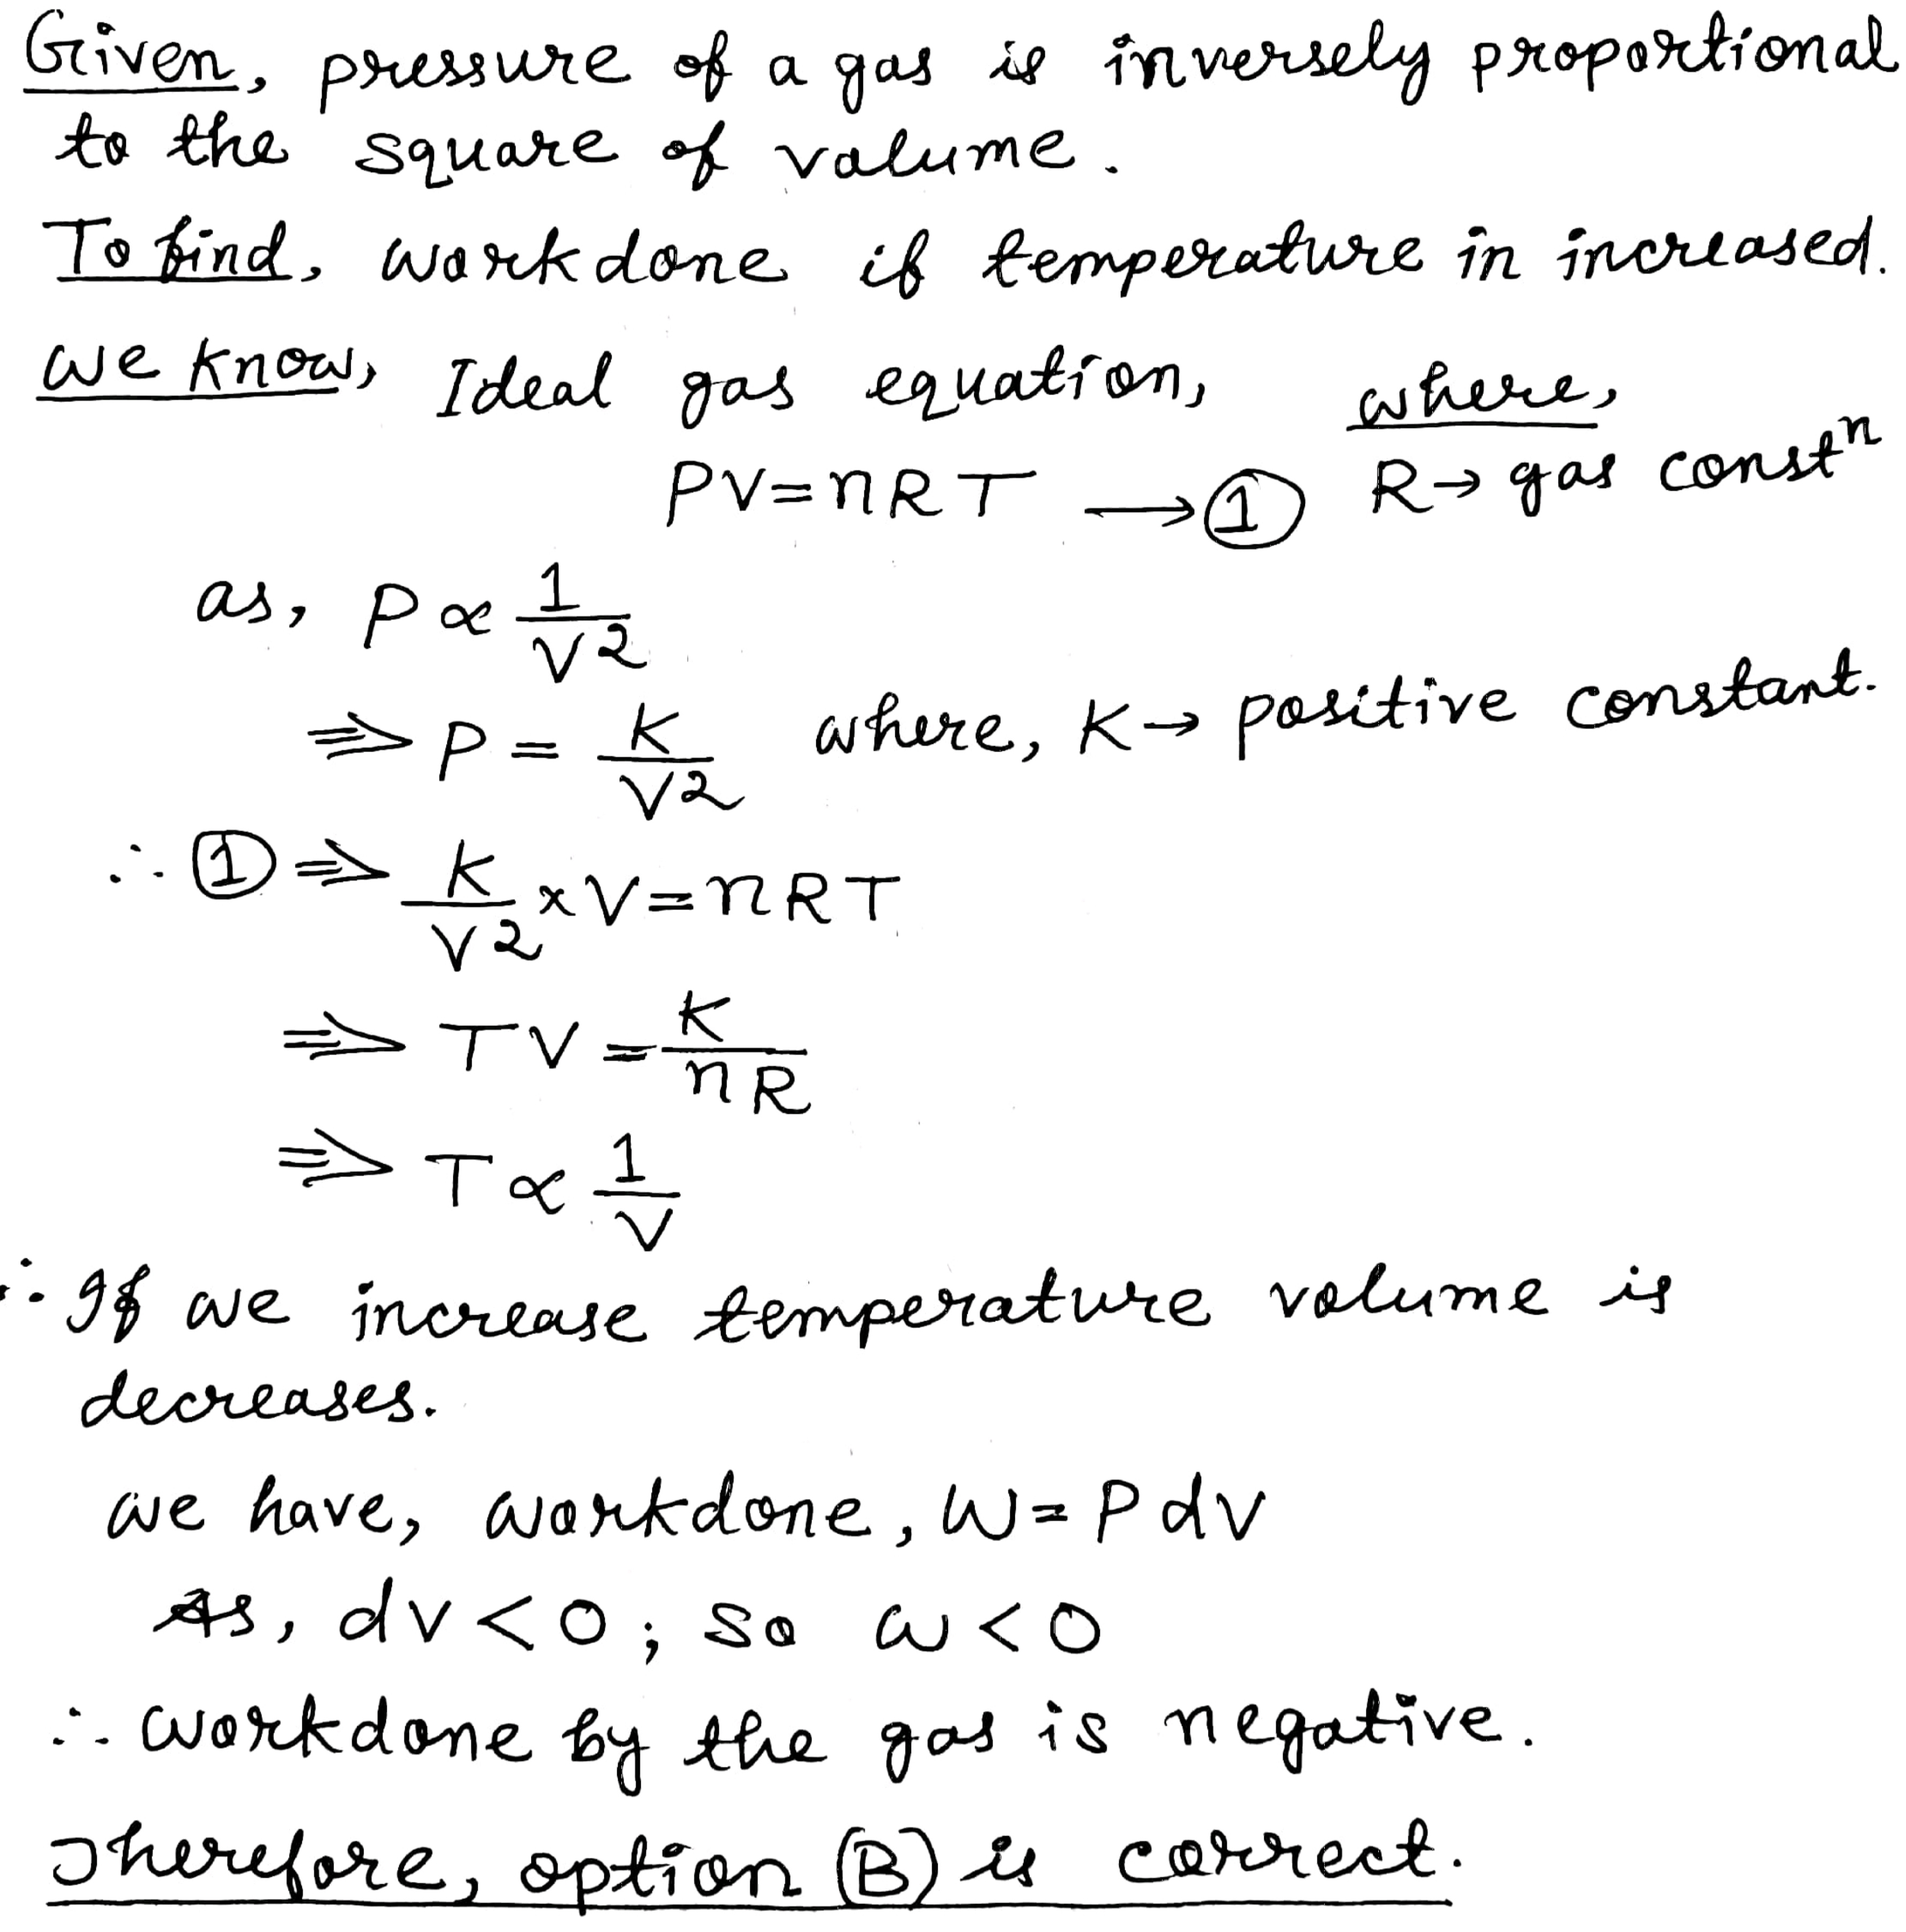 Given, pressure of a gas is inversely proportional
to the square of volume.
To find, workdone if temperature in increased.
we know, Ideal gas equation, where,
PV=nRT →① R→gas constⁿ
as, P∝1/V²
⇒P=K/V² where, K→positive constant.
∴①⇒K/V²×V=nRT
⇒TV=K/nR
⇒T∝1/V
∴If we increase temperature volume is
decreases.
we have, workdone, W=PdV
As, dv<0; so w<0
∴workdone by the gas is negative.
Therefore, option (B) is correct.